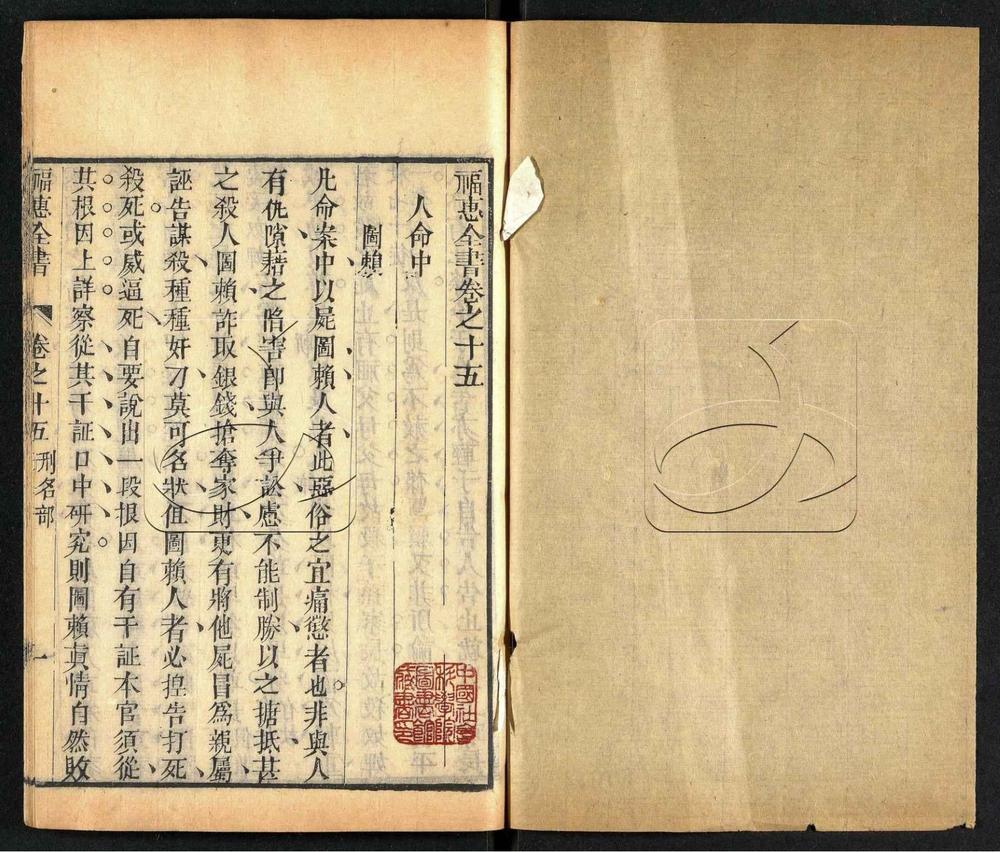 福惠全書卷之十五
人命中
圖賴
凡命案中以屍圖賴人者此惡俗之宜痛懲者也非與人
有仇隙藉之陷害卽與人爭訟慮不能制勝以之搪抵甚
之殺人圖賴詐取銀錢搶奪家財更有將他屍冒爲親屬
誣告謀殺種種奸刁莫可名狀但圖賴人者必揑告打死
殺死或威逼死自要說出一段根因自有干証本官須從
其根因上詳察從其干証口中研究則圖賴真情自然敗
福惠全書 卷之十五 刑名部 一
中國社會
科學院
圖書館
藏書